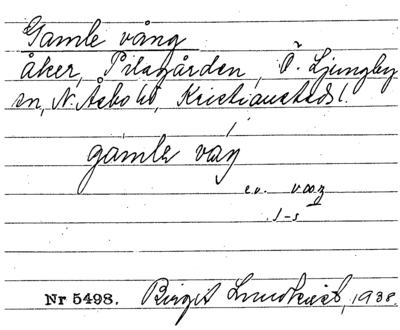 Gamle vång
åker, Pilagården, Ö. Ljungby
sn, N. Åsbo hd, Kristianstads l.
gamle våŋ
e.v. vωŋ
1-s
Nr 5498. Birgit Lundkvist, 1938.